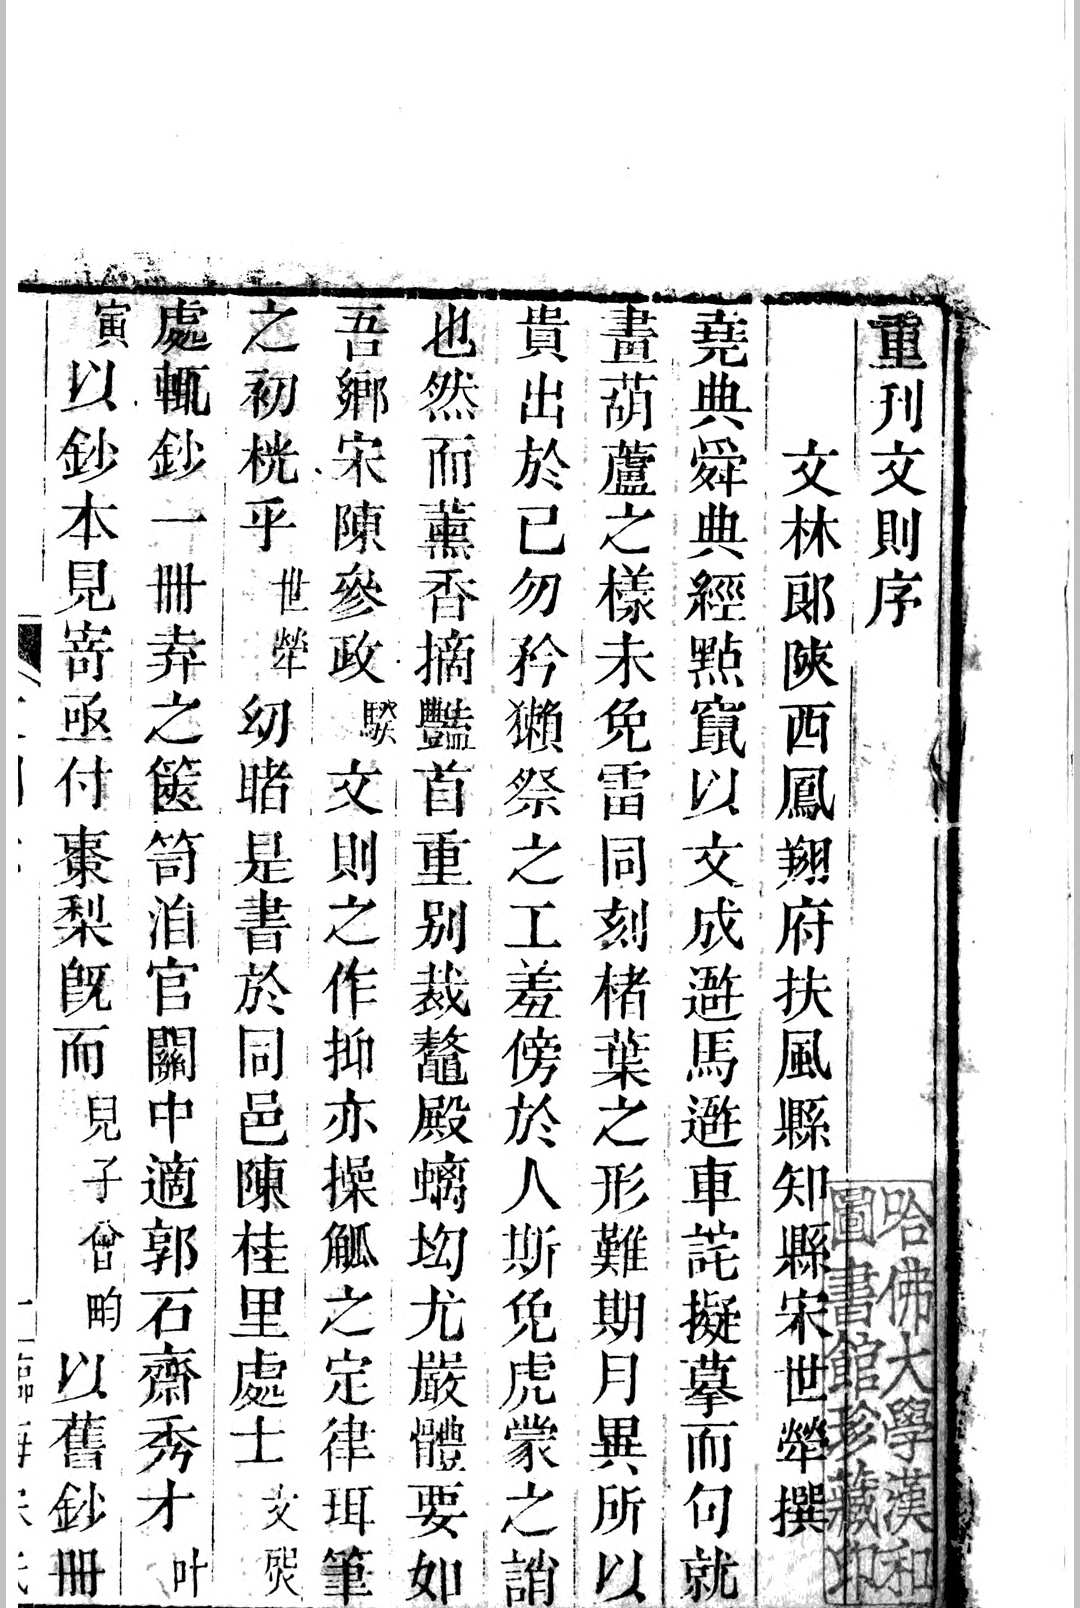 重刊文則序
文林郎陝西鳳翔府扶風縣知縣宋世犖撰
堯典舜典經點竄以文成遊馬遊車詫擬摹而句就
畫葫蘆之樣未免雷同刻楮葉之形難期月異所以
貴出於已勿矜獺祭之工羞傍於人斯免虎蒙之誚
也然而薰香摘豔首重別裁鼇殿螭坳尤嚴體要如
吾鄉宋陳參政騤文則之作抑亦操觚之定律珥筆
之初桄乎世犖幼睹是書於同邑陳桂里處士文煚
處輒鈔一冊弆之篋笥洎官關中適郭石齋秀才叶
寅以鈔本見寄亟付棗梨既而兒子曾畇以舊鈔冊
哈佛大學漢和
圖書館珍藏印